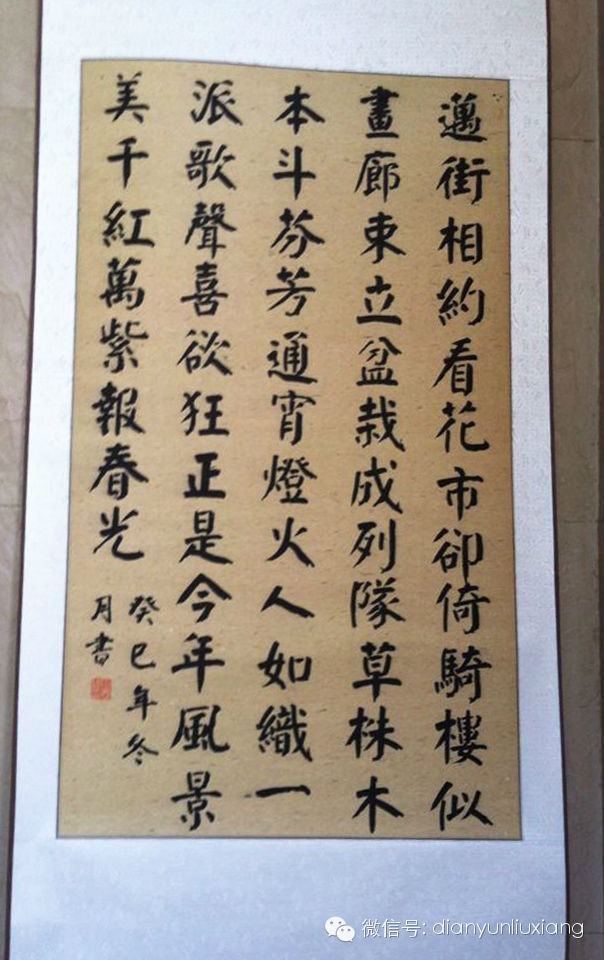 邁街相約看花市卻倚騎樓似
畫廊東立盆栽成列隊草株木
本斗芬芳通宵燈火人如織一
派歌聲喜欲狂正是今年風景
美千紅萬紫報春光
癸巳年冬
月書
微信号: dianyunliuxiang